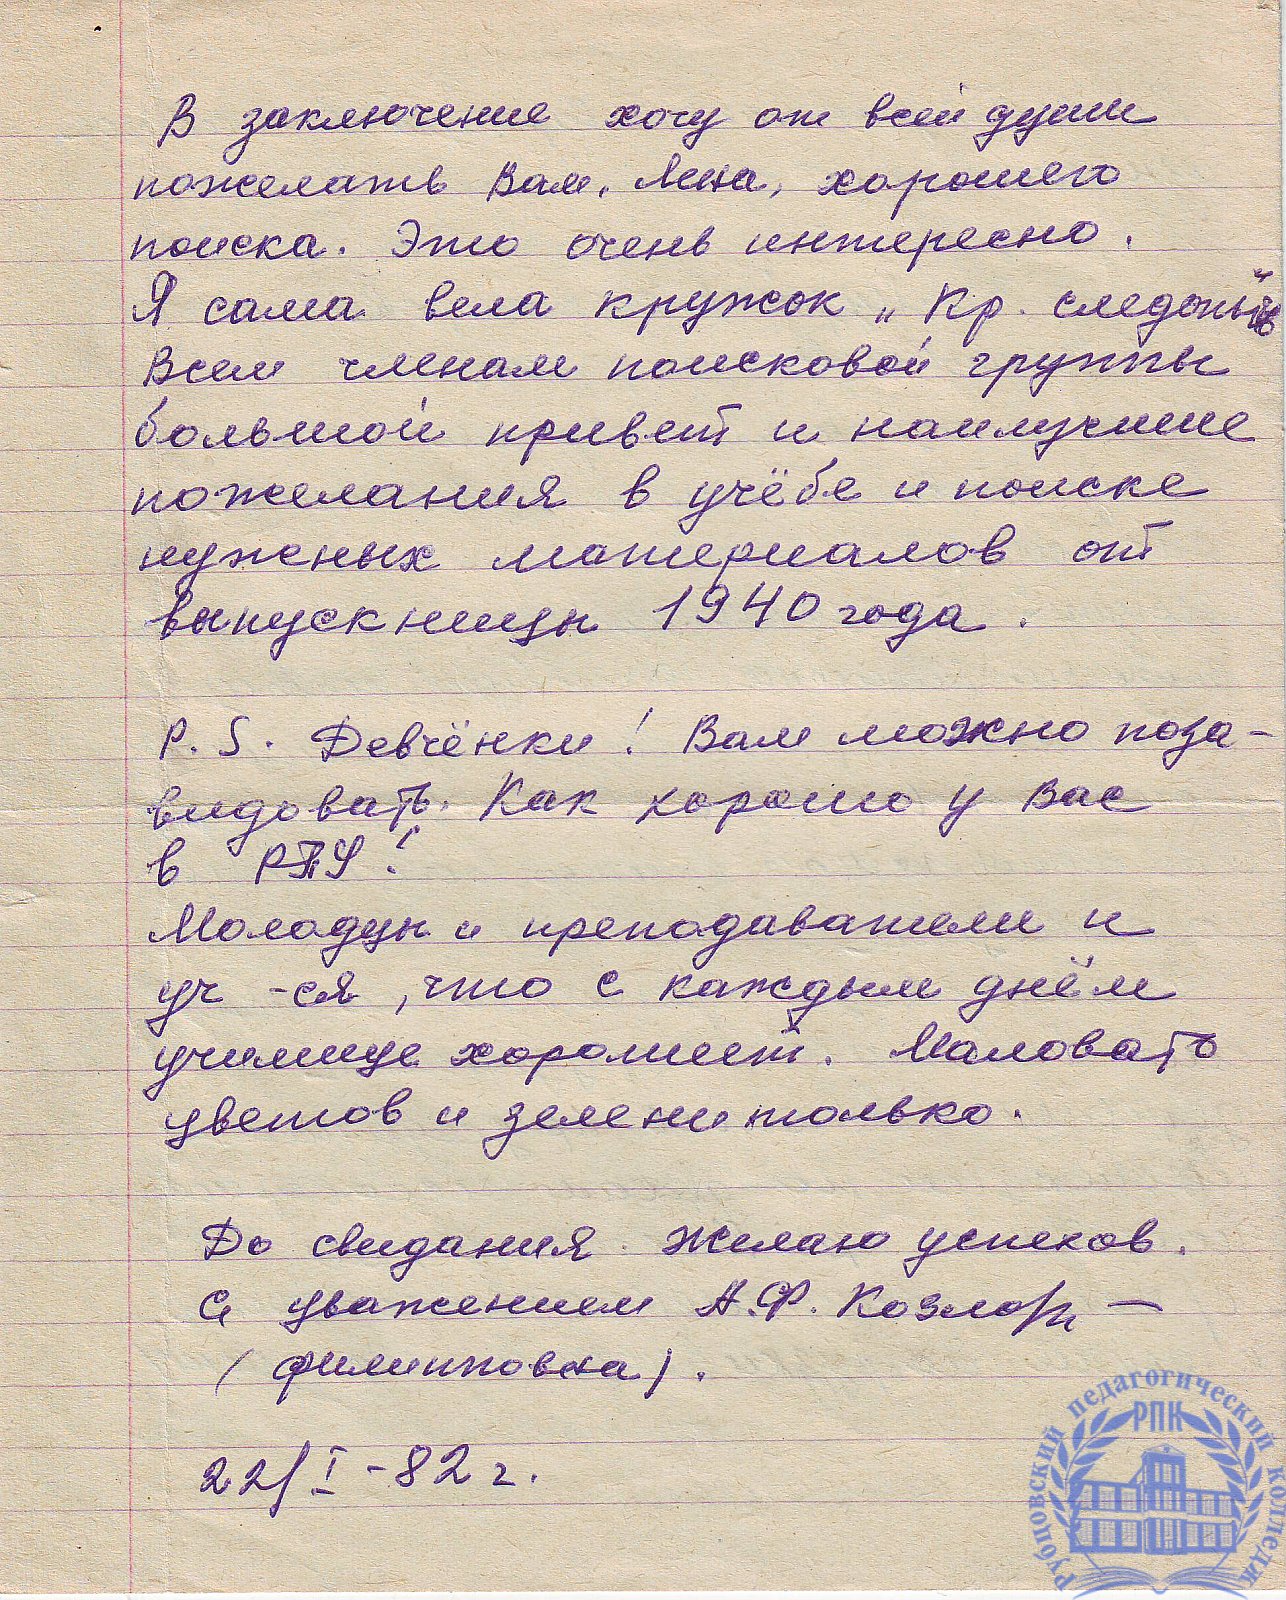 В заключение хочу от всей души
пожелать Вам, Лена, хорошего
поиска. Это очень интересно.
Я сама вела кружок „Кр. следопыт"
Всем членам поисковой группы
большой привет и наилучшие
пожелания в учёбе и поиске
нужных материалов от
выпускницы 1940 года.
P.S. Девчёнки! Вам можно поза-
видовать. Как хорошо у Вас
в РПУ!
Молодцы и преподаватели и
уч-ся, что с каждым днём
училище хорошеет. Маловато
цветов и зелени только.
До свидания. Желаю успехов.
С уважением А.Ф. Козлова —
(Филипповна).
22/I-82 г.
Рубцовский педагогический колледж
РПК